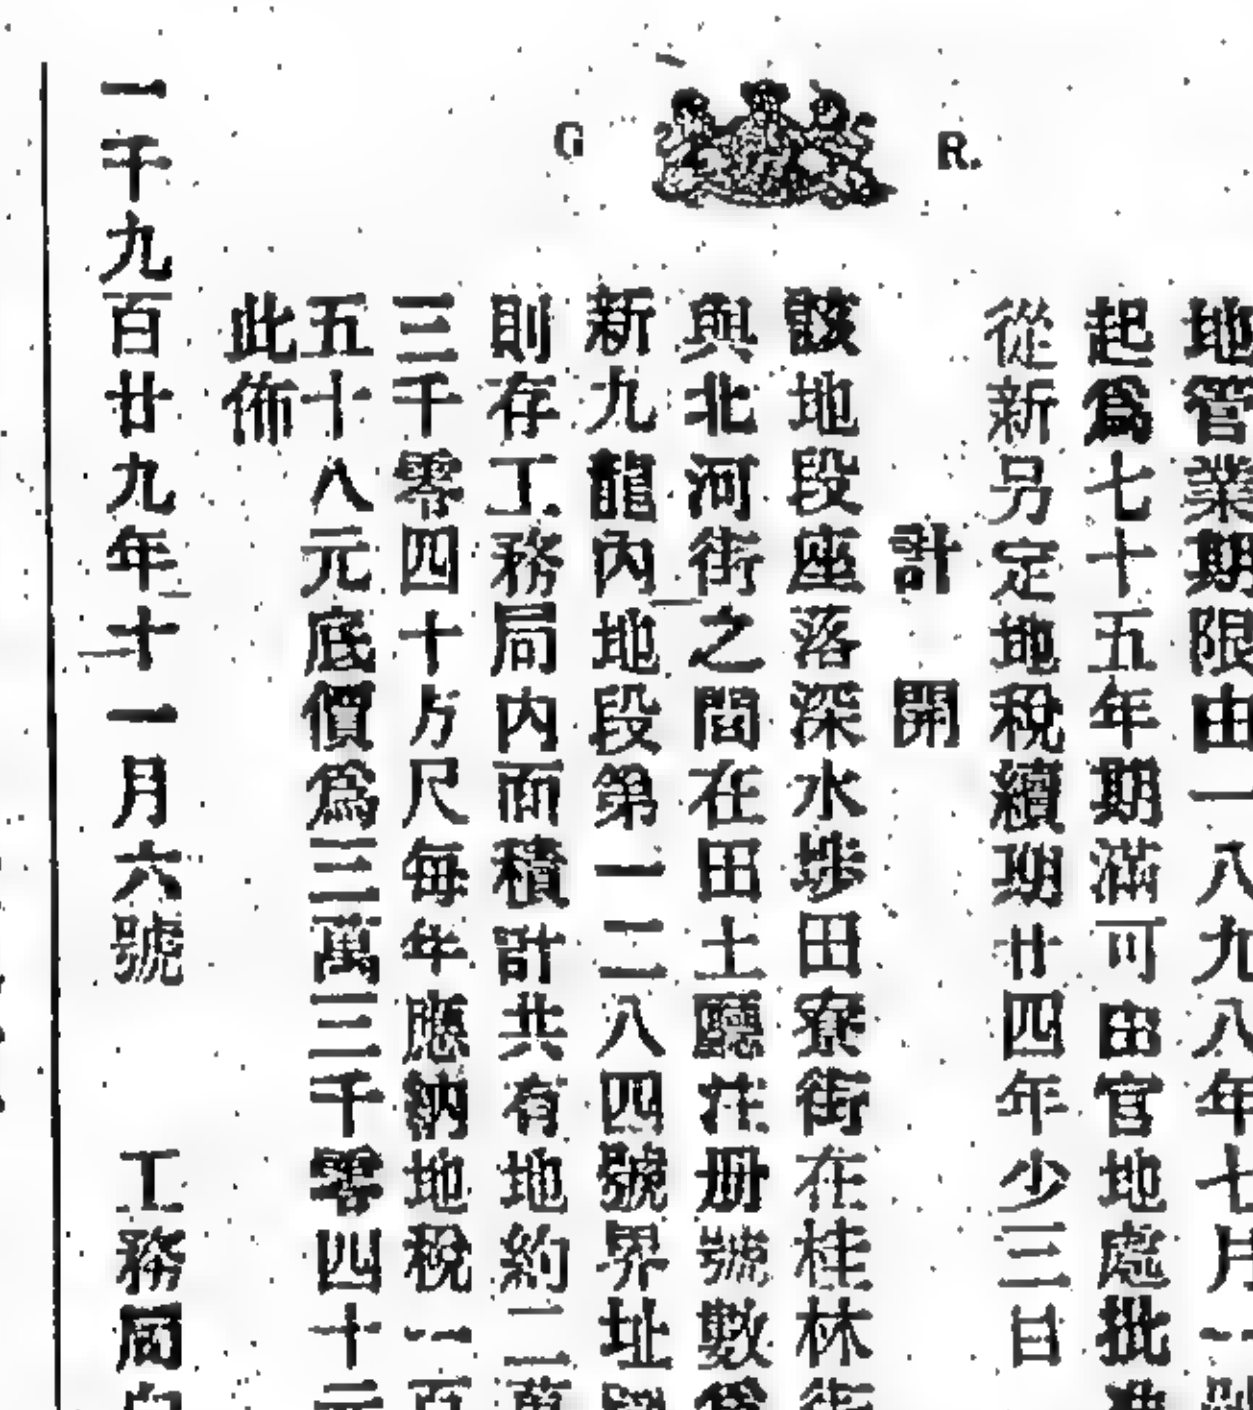 G R.
地管業期限由一八九八年七月一號
起爲七十五年期滿可由官地處批準
從新另定地稅續期廿四年少三日
計開
該地段座落深水埗田寮街在桂林街
與北河街之間在田土廳注册號數爲
新九龍內地段第一二八四號界址
則存工務局內面積計共有地約二萬
三千零四十方尺每年應納地稅一百
五十八元底價爲三萬三千零四十元
此佈
一千九百廿九年十一月六號 工務局